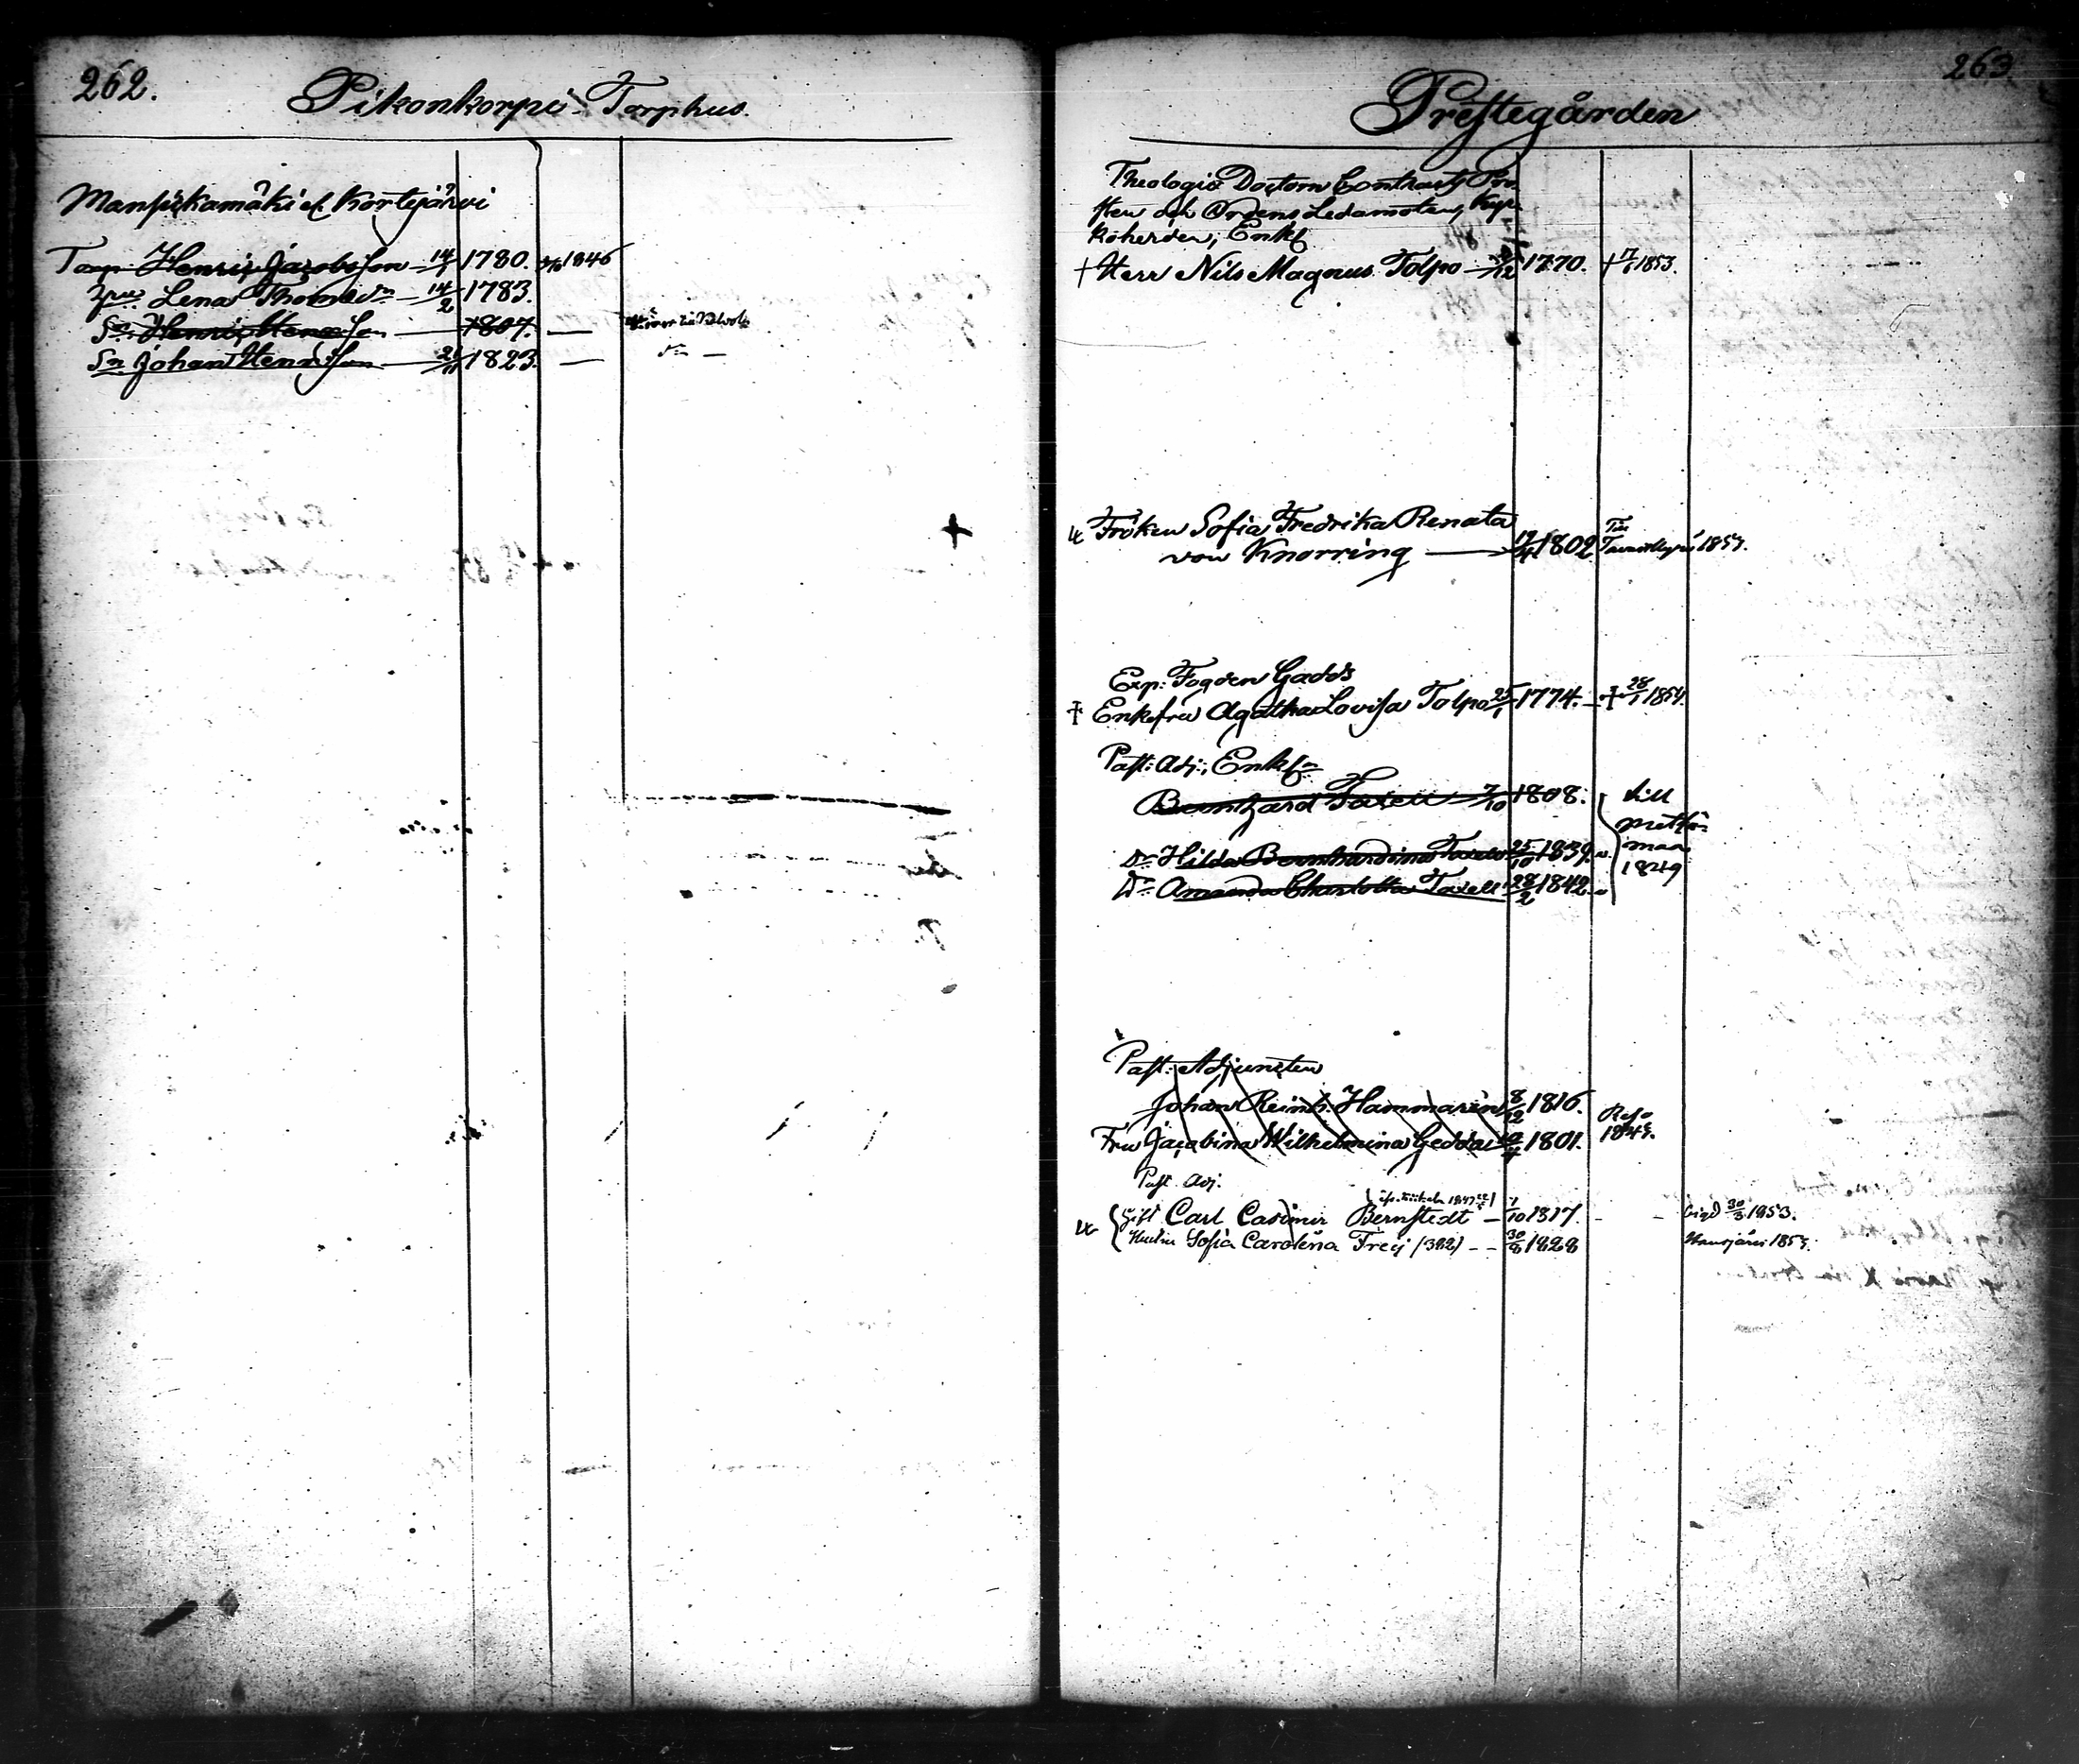 262.
Pikonkorpi Torphus.
Mansikamäki el. Kortejärvi
Torp. Henric Jacobsson 14/1 1780. 1846
Lena Thomæ dr 14/2 1783.
Sn Henric Henricsson 1807. —
Sn Johan Henricsson 21/11 1823. —
263
Prestegården
Theologie Doctorn Contracts Pro-
sten och Ordens Ledamoten, Kyr-
koherden, Enkl
† Herr Nils Magnus Tolpo 1770. † 1853.
Fröken Sofia Fredrika Renata
von Knorring 1802 Till 1857.
Exp: Fogden Gadds
† Enkefru Agatha Lovisa Tolpo 25/1 1774. † 28/1 1854.
Past: Adj:, Enkl
Bernhard Taxell 7/10 1808. till
Dr Hilda Bernhardina Taxell 25/10 1839.
Dr Amanda Charlotta Taxell 28/2 1842. 1849
Past. Adjuncten
Johan Reinh. Hammarén 8/12 1816.
Fru Jacobina Wilhelmina Gedda 1801. 1845.
Past. Adj.
Carl Casimir Bernstedt 7/10 1817. vigd 30/3 1853.
Hustru Sofia Carolina Frey (382) 30/8 1828 Hausjärvi 1857.